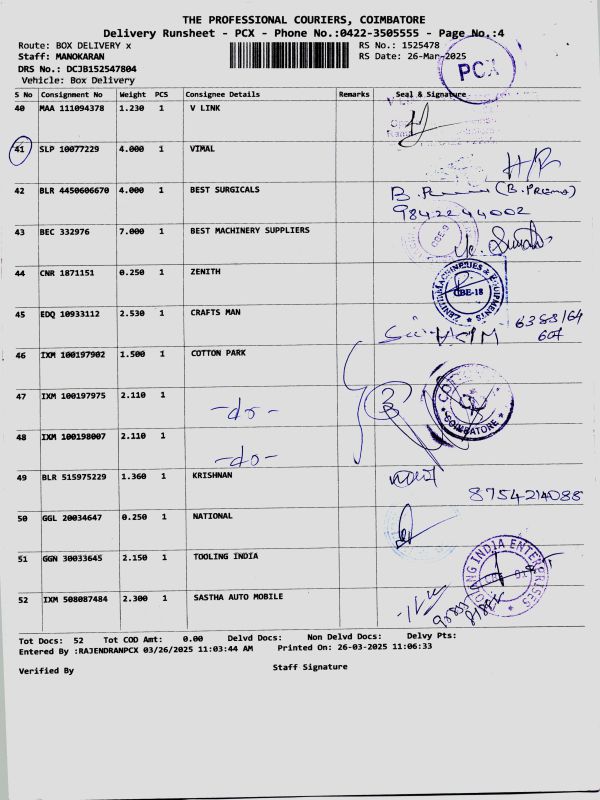 THE PROFESSIONAL COURIERS, COIMBATORE
Delivery Runsheet - PCX - Phone No.:0422-3505555 - Page No.:4
Route: BOX DELIVERY x
RS No.: 1525478
Staff: MANOKARAN
RS Date: 26-Mar-2025
DRS No.: DCJB152547804
Vehicle: Box Delivery
PCX
S No Consignment No Weight PCS Consignee Details Remarks Seal & Signature
40 MAA 111094378 1.230 1 V LINK
41 SLP 10077229 4.000 1 VIMAL
42 BLR 4450606670 4.000 1 BEST SURGICALS B. (B.PREMA)
9842244002
43 BEC 332976 7.000 1 BEST MACHINERY SUPPLIERS
44 CNR 1871151 0.250 1 ZENITH
ZENITH MACHINERIES & EQUIPMENTS
CBE-18
45 EDQ 10933112 2.530 1 CRAFTS MAN
46 IXM 100197902 1.500 1 COTTON PARK
47 IXM 100197975 2.110 1 -do-
COIMBATORE
48 IXM 100198007 2.110 1 -do-
49 BLR 515975229 1.360 1 KRISHNAN
8754214088
50 GGL 20034647 0.250 1 NATIONAL
51 GGN 30033645 2.150 1 TOOLING INDIA
TOOLING INDIA ENTERPRISES
52 IXM 508087484 2.300 1 SASTHA AUTO MOBILE
Tot Docs: 52 Tot COD Amt: 0.00 Delvd Docs: Non Delvd Docs: Delvy Pts:
Entered By :RAJENDRANPCX 03/26/2025 11:03:44 AM Printed On: 26-03-2025 11:06:33
Verified By Staff Signature